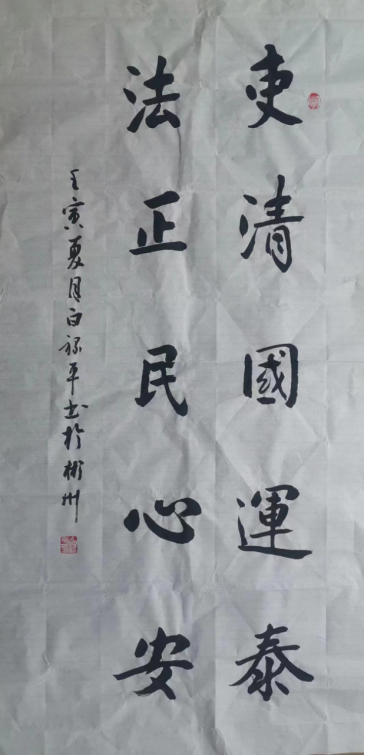 吏清國運泰
法正民心安
壬寅夏月白禄平书於彬州